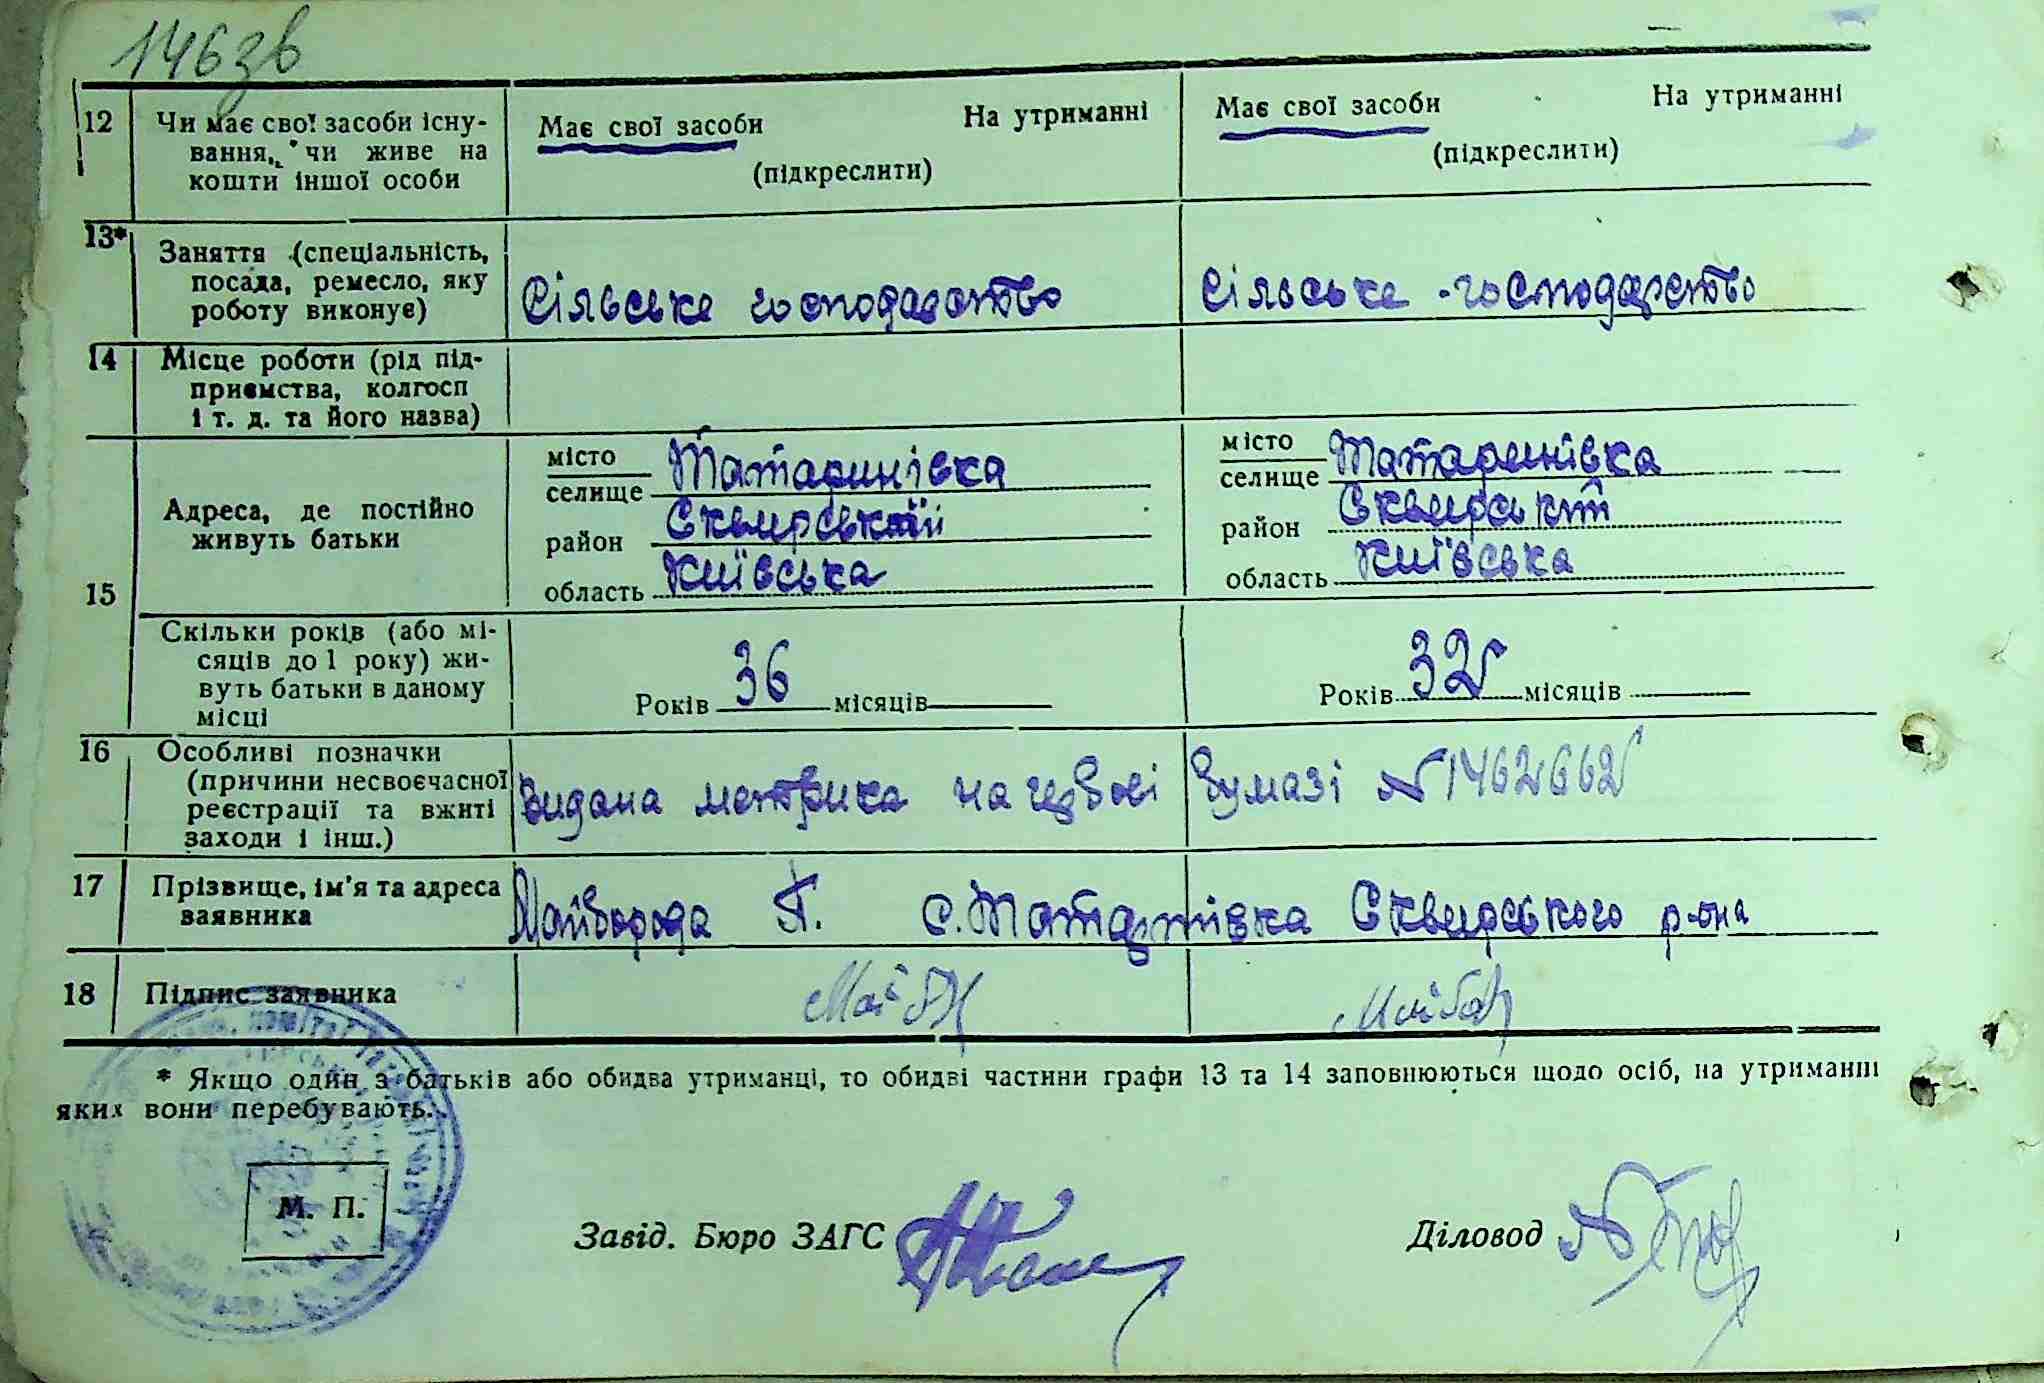 146зв
12 Чи має свої засоби існу- Має свої засоби На утриманні Має свої засоби На утриманні
вання, чи живе на (підкреслити) (підкреслити)
кошти іншої особи
13* Заняття (спеціальність,
посада, ремесло, яку
роботу виконує) Сільське господарство Сільське господарство
14 Місце роботи (рід під-
приємства, колгосп
і т. д. та його назва)
15 Адреса, де постійно
живуть батьки
місто Татаринівка місто Татаринівка
селище селище
район Сквирський район Сквирський
область Київська область Київська
Скільки років (або мі-
сяців до 1 року) жи-
вуть батьки в даному
місці
Років 36 місяців Років 32 місяців
16 Особливі позначки
(причини несвоєчасної
реєстрації та вжиті
заходи і інш.)
Видана метрика на бумазі №1462662
17 Прізвище, ім'я та адреса
заявника
Майборода П. с. Татаринівка Сквирського р-она
18 Підпис заявника
* Якщо один з батьків або обидва утриманці, то обидві частини графи 13 та 14 заповнюються щодо осіб, на утриманні
яких вони перебувають.
М. П.
Завід. Бюро ЗАГС Діловод